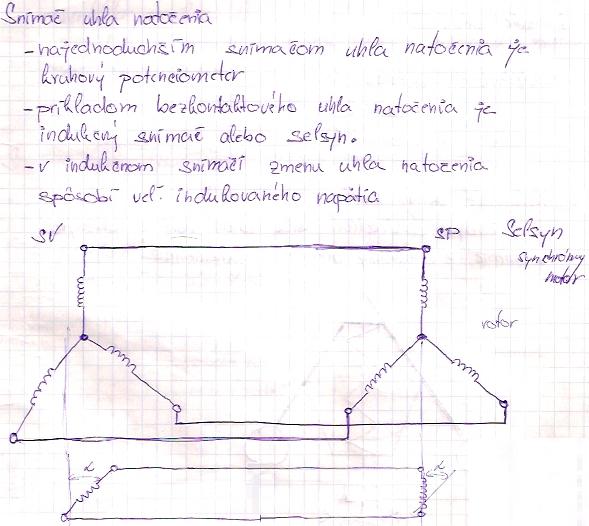 Snímač uhla natočenia
- najednoduchším snímačom uhla natočenia je
kruhový potenciometer
- príkladom bezkontaktového uhla natočenia je
indukčný snímač alebo selsyn.
- v indukčnom snímači zmenu uhla natočenia
spôsobí veľ. indukovaného napätia
SV
SP
Selsyn
synchrónny
motor
rotor
α
α